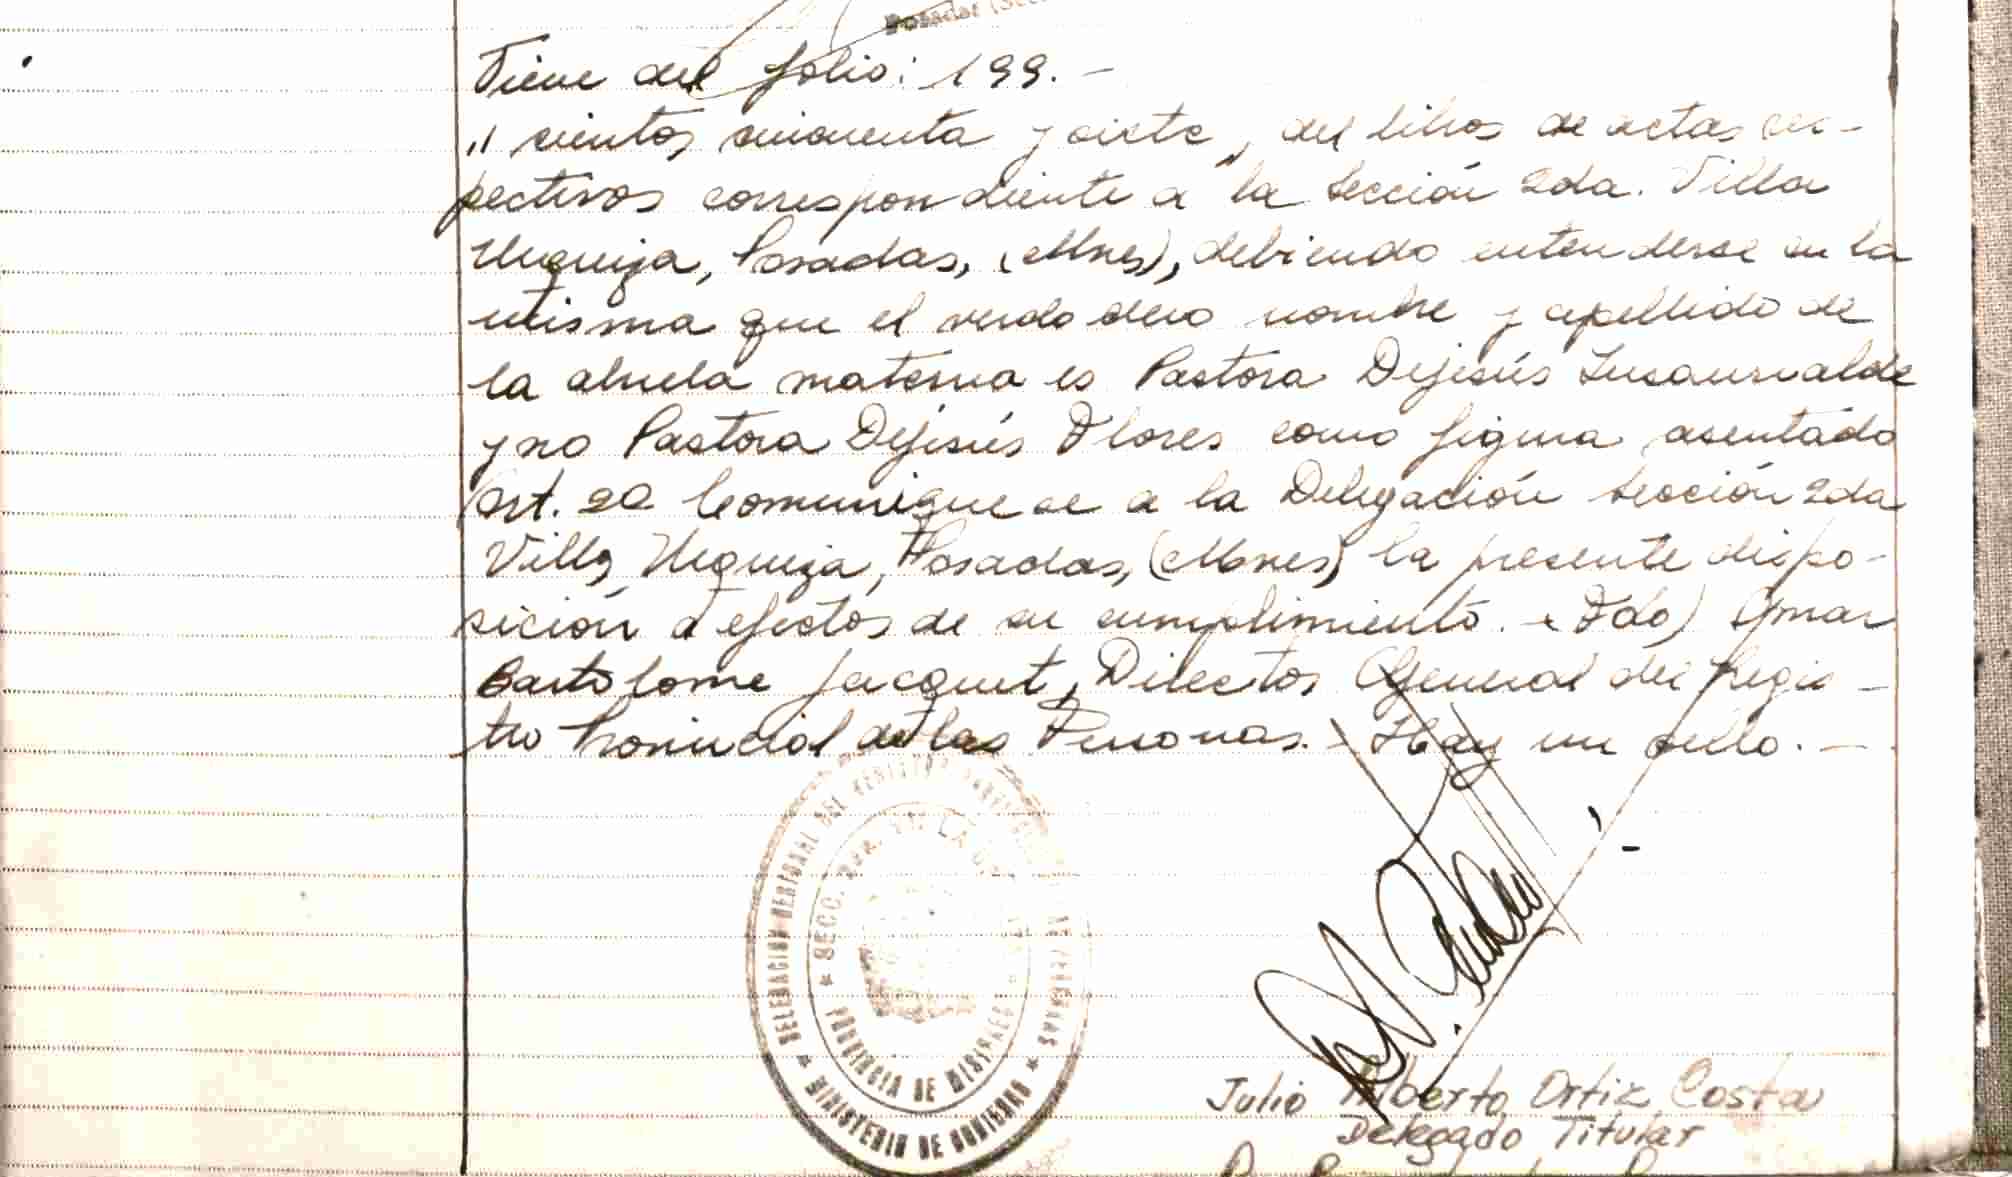 Posadas (
Viene del folio: 199. -
" cientos cincuenta y siete", del libros de actas res-
pectivos correspondiente a la Sección 2da. Villa
Urquiza, Posadas, (Mnes), debiendo entenderse en la
misma que el verdadero nombre y apellido de
la abuela materna es Pastora Dejesús Insaurralde
y no Pastora Dejesús Flores como figura asentado
Art. 2º Comuniquese a la Delegación Sección 2da
Villa Urquiza, Posadas, (Mnes) la presente dispo-
sición a efectos de su cumplimiento. - Fdo) Omar
Bartolome Jacquet, Director General del Regis-
tro Provincial de las Personas. - Hay un sello. -
DELEGACION DEL REGISTRO PROVINCIAL DE LAS PERSONAS
SECC. 2DA. LA
PROVINCIA DE MISIONES
MINISTERIO DE GOBIERNO
Julio Alberto Ortiz Costa
Delegado Titular